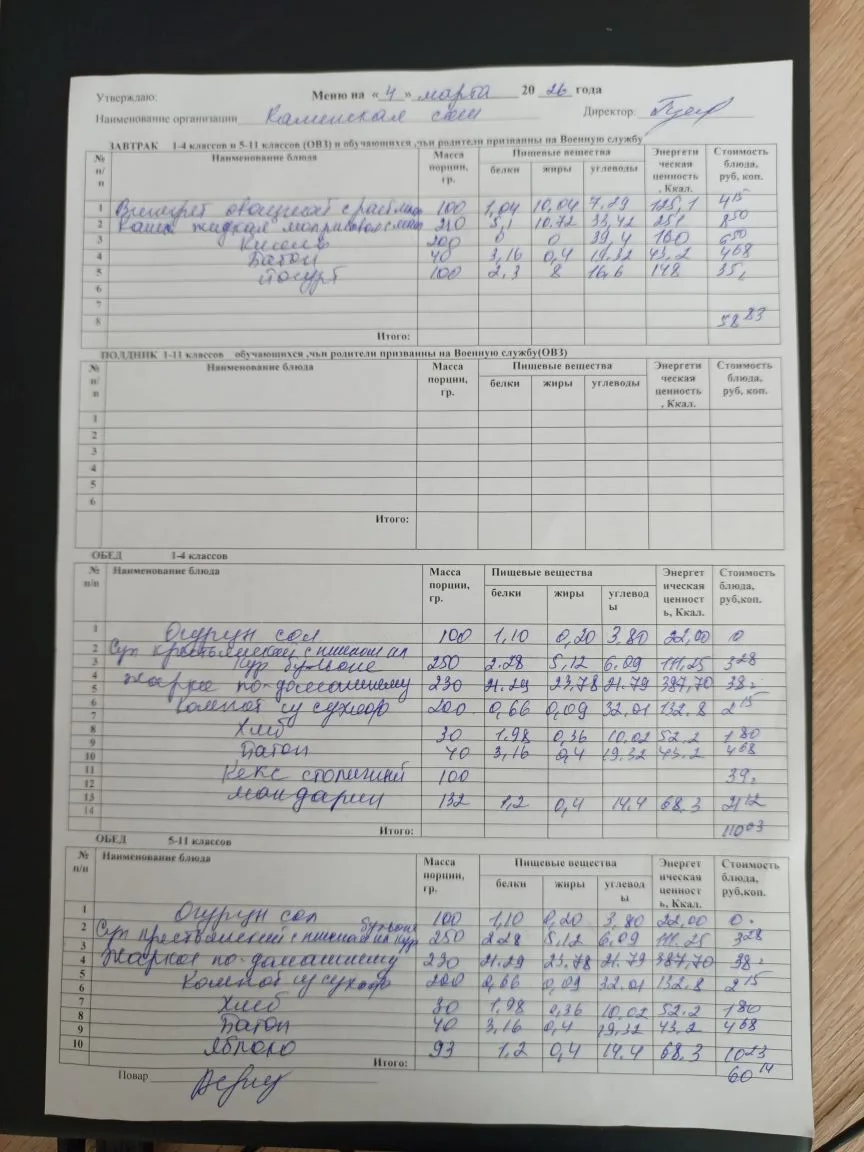 Утверждаю: Меню на « 4 » марта 20 26 года
Наименование организации Каменская сош Директор:
ЗАВТРАК 1-4 классов и 5-11 классов (ОВЗ) и обучающихся ,чьи родители призванны на Военную службу
№ п/п Наименование блюда Масса порции, гр. Пищевые вещества Энергети ческая ценность , Ккал. Стоимость блюда, руб, коп.
белки жиры углеводы
1 Винегрет овощной с раст маслом 100 1,04 10,04 7.29 125,1 4 15
2 Каша жидкая молочная 210 5,1 10.72 33,42 251 8 50
3 Кисель 200 0 0 39,4 160 6 50
4 Батон 40 3,16 0,4 19.32 43.2 4 68
5 Йогурт 100 2.3 8 16.6 148 35
6
7
8 58 83
Итого:
ПОЛДНИК 1-11 классов обучающихся ,чьи родители призванны на Военную службу(ОВЗ)
№ п/п Наименование блюда Масса порции, гр. Пищевые вещества Энергети ческая ценность , Ккал. Стоимость блюда, руб, коп.
белки жиры углеводы
1
2
3
4
5
6
Итого:
ОБЕД 1-4 классов
№ п/п Наименование блюда Масса порции, гр. Пищевые вещества Энергет ическая ценност ь, Ккал. Стоимость блюда, руб,коп.
белки жиры углевод ы
1 Огурцы сол 100 1,10 0,20 3.80 22,00 0
2 Суп крестьянский с пшеном на
3 кур бульоне 250 2.28 5,12 6.09 111,25 3 28
4
5 Жаркое по-домашнему 230 21.29 23,78 21.79 387,70 38
6 Компот из сухофр 200 0,66 0,09 32.01 132.8 2 15
7
8 Хлеб 30 1.98 0,36 10,02 52.2 1 80
9 Батон 40 3,16 0,4 19.32 43.2 4 68
10
11 Кекс столичный 100 39
12
13 Мандарин 132 1,2 0,4 14.4 68.3 21 12
14
Итого: 110 03
ОБЕД 5-11 классов
№ п/п Наименование блюда Масса порции, гр. Пищевые вещества Энергет ическая ценност ь, Ккал. Стоимость блюда, руб,коп.
белки жиры углевод ы
1 Огурцы сол 100 1,10 0,20 3,80 22,00 0
2 Суп крестьянский с пшеном на кур бульоне 250 2.28 5,12 6,09 111.25 3 28
3
4 Жаркое по-домашнему 230 21.29 23.78 21.79 387,70 38
5
6 Компот из сухофр 200 0,66 0,09 32.01 132.8 2 15
7 Хлеб 30 1,98 0,36 10,02 52.2 1 80
8
9 Батон 40 3,16 0,4 19,32 43,2 4 68
10 Яблоко 93 1.2 0,4 14.4 68.3 10 23
Итого: 60 14
Повар